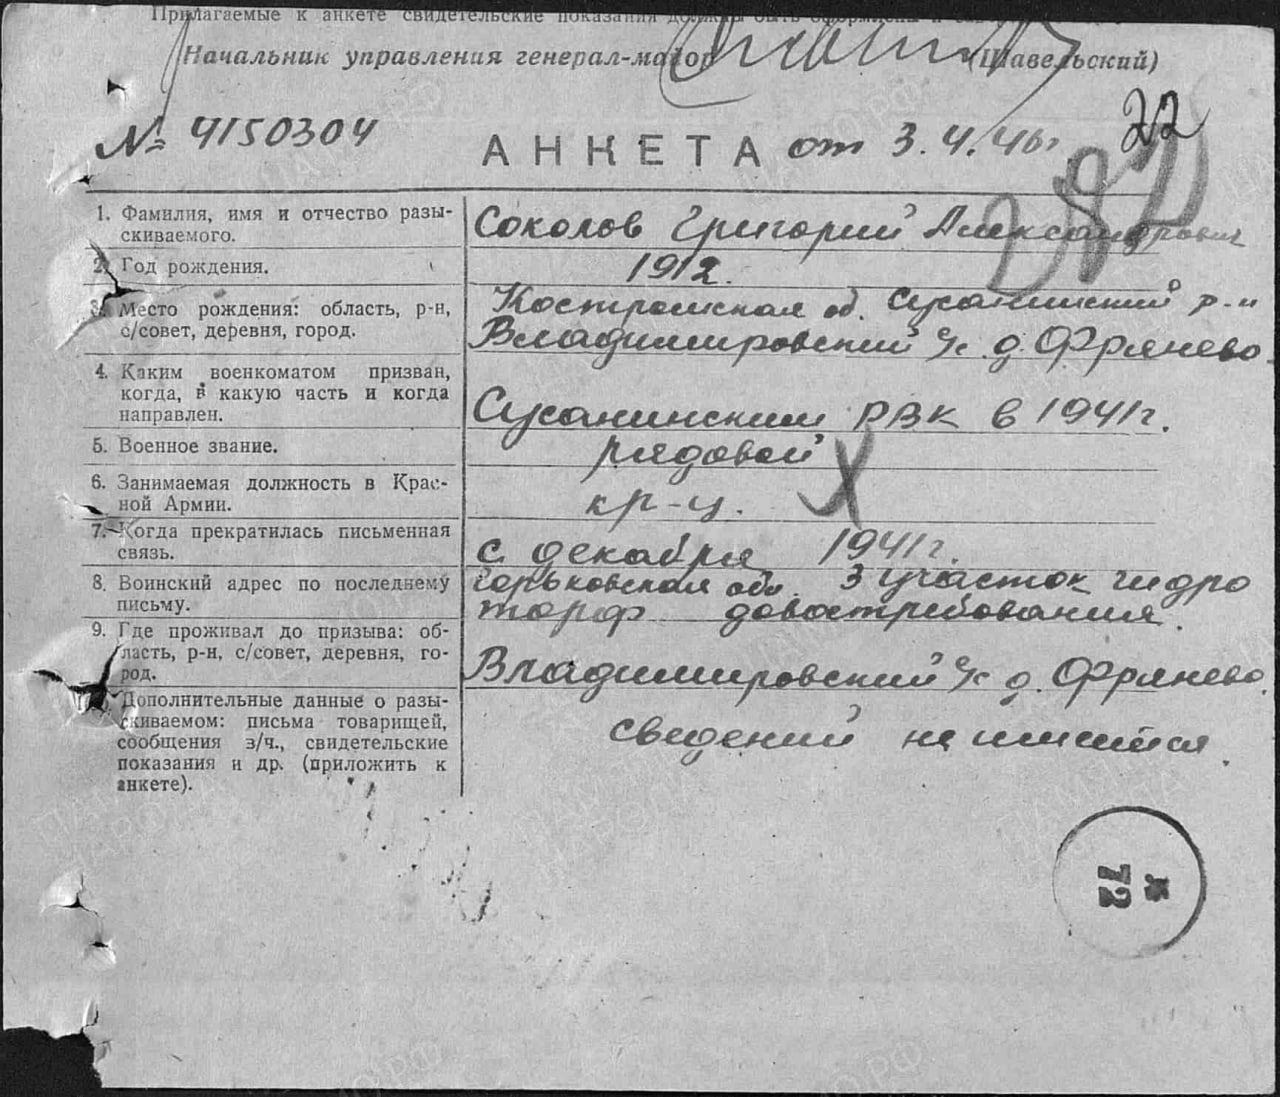 Прилагаемые к анкете свидетельские показания должны быть оформлены
Начальник управления генерал-майор (Шавельский)
№ 4150304 АНКЕТА от 3.4.46г. 22
1. Фамилия, имя и отчество разы-
скиваемого.
Соколов Григорий Александрович
2. Год рождения.
1912.
3. Место рождения: область, р-н,
с/совет, деревня, город.
Костромская об. Сусанинский р-н
Владимировский с/с д. Фрянево
4. Каким военкоматом призван,
когда, в какую часть и когда
направлен.
Сусанинским РВК в 1941г.
5. Военное звание.
рядовой
6. Занимаемая должность в Крас-
ной Армии.
кр-ц.
7. Когда прекратилась письменная
связь.
с декабря 1941г.
8. Воинский адрес по последнему
письму.
Горьковская обл. 3 участок гидро
торф довостребования.
9. Где проживал до призыва: об-
ласть, р-н, с/совет, деревня, го-
род.
Владимировский с/с д. Фрянево.
Дополнительные данные о разы-
скиваемом: письма товарищей,
сообщения з/ч., свидетельские
показания и др. (приложить к
анкете).
сведений не имеется.
К
72